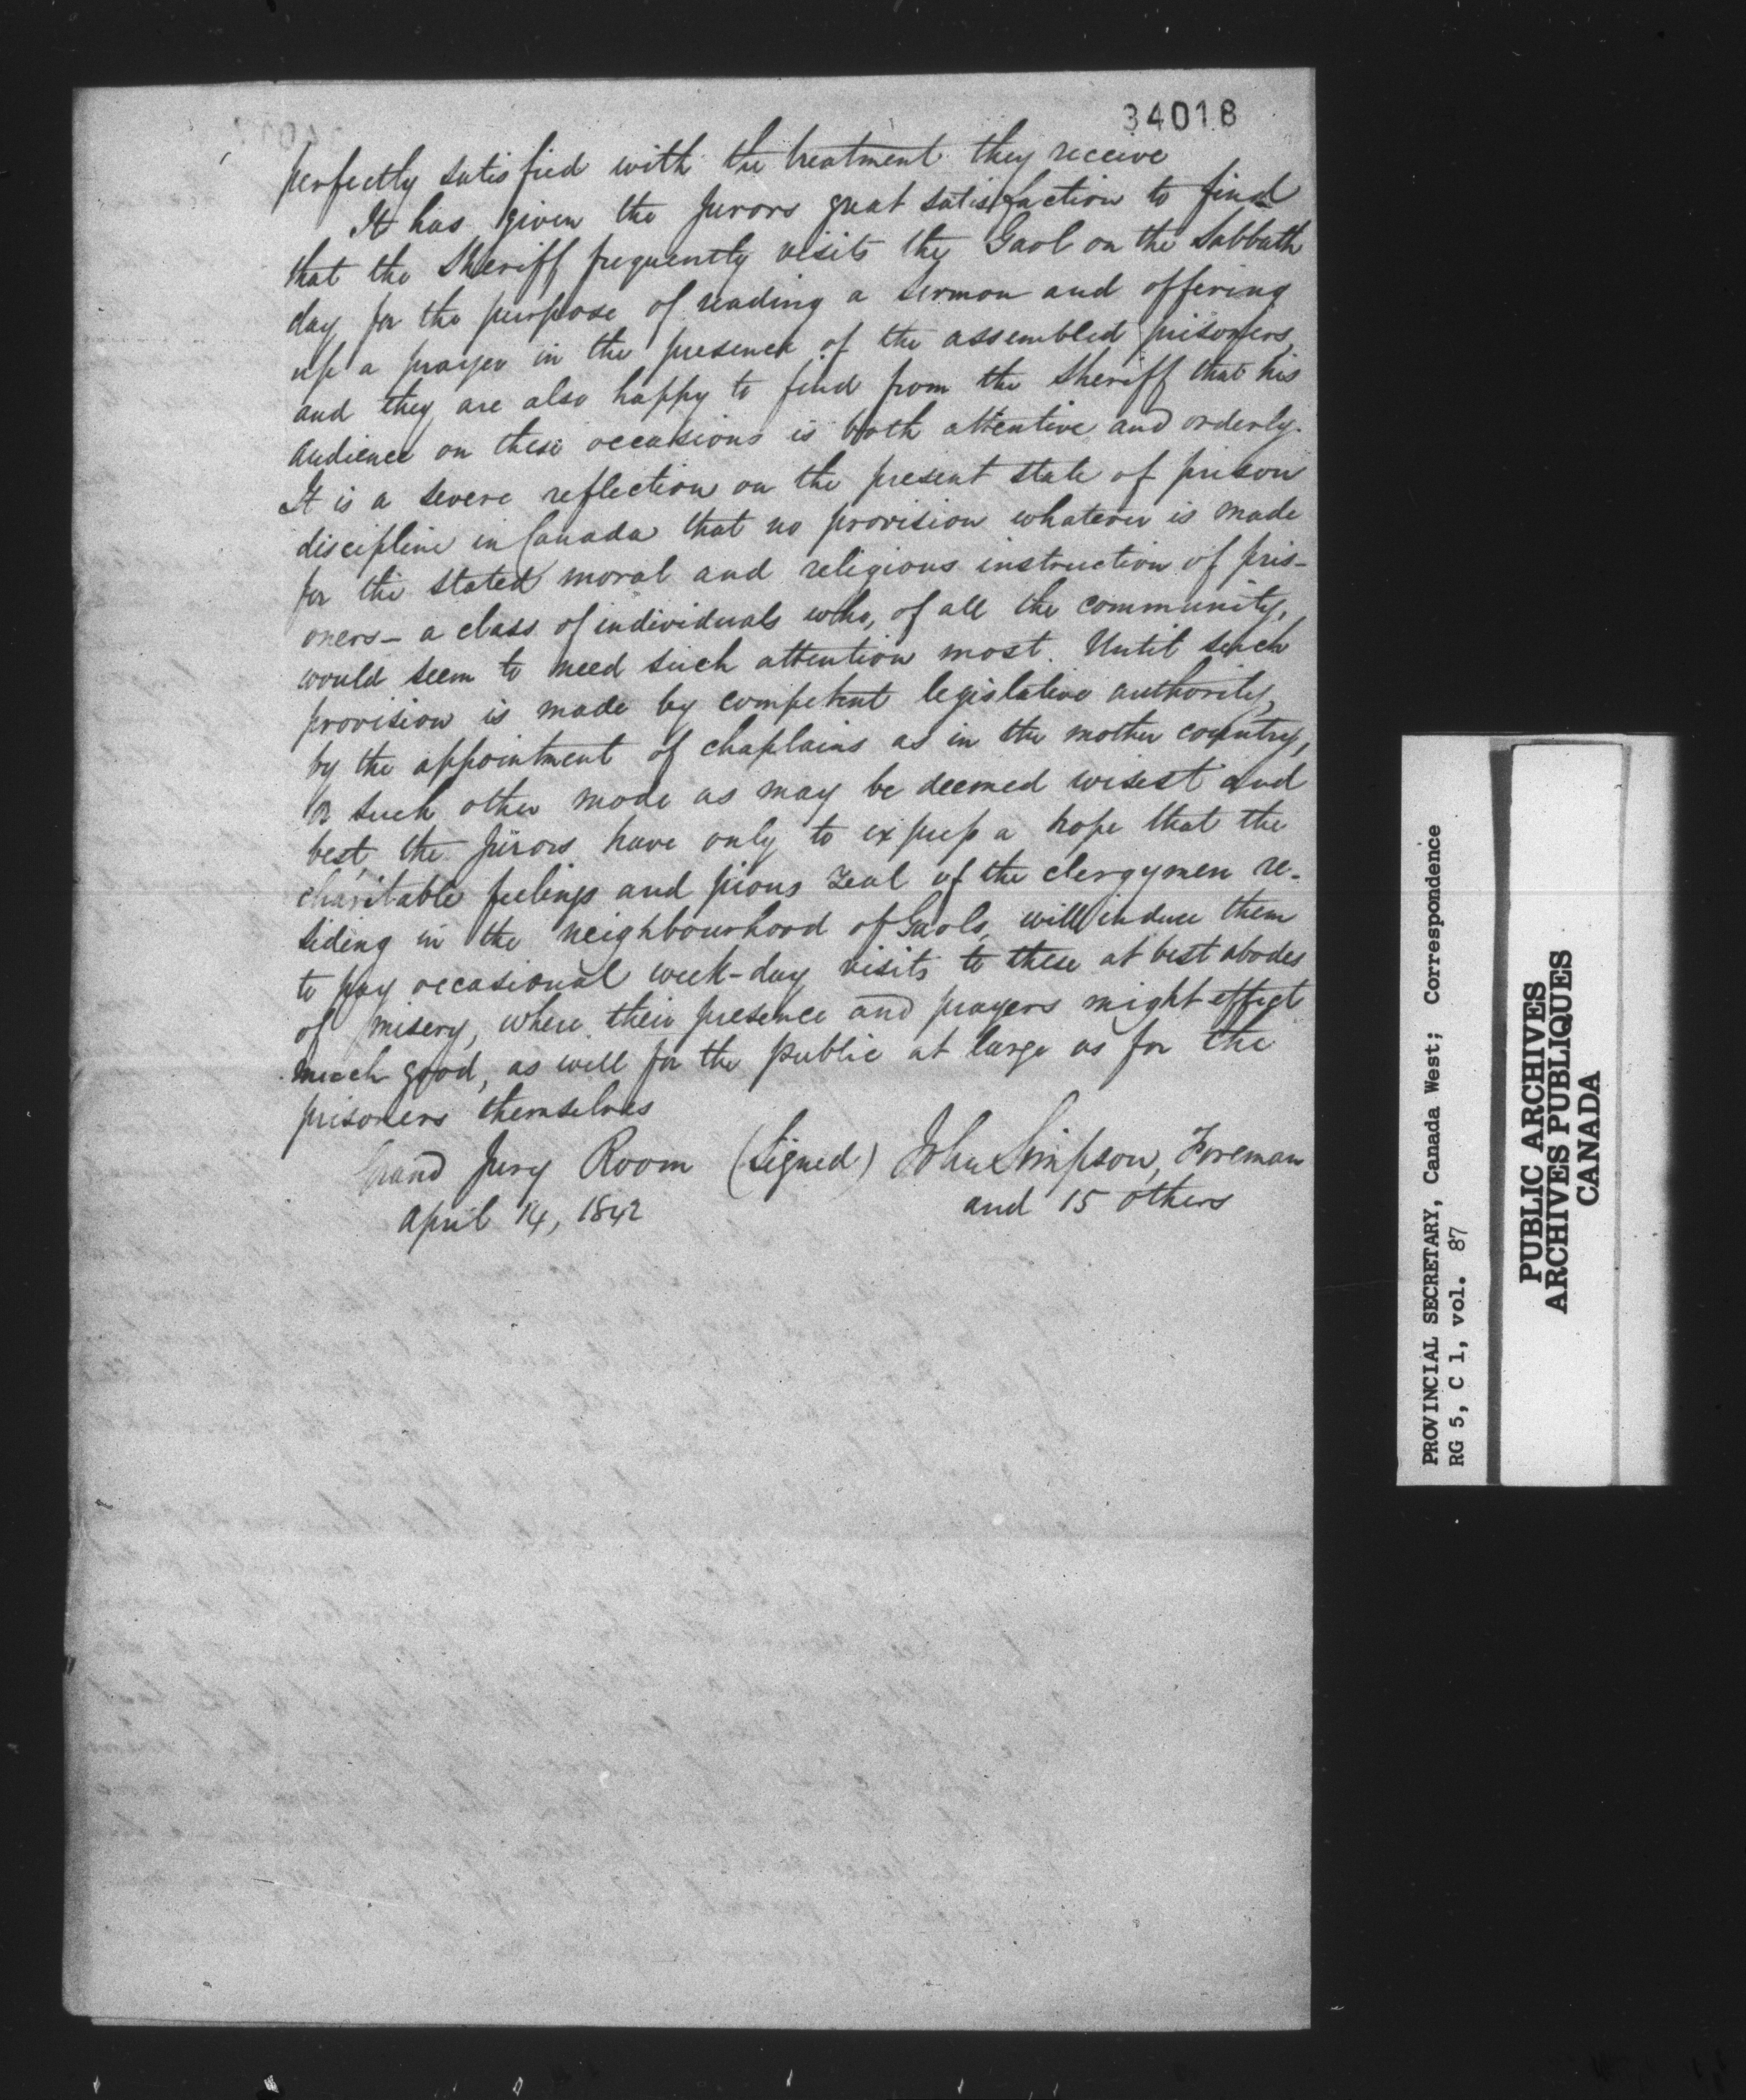 34018
perfectly satisfied with the treatment they receive
It has given the Jurors great satisfaction to find
that the Sheriff frequently visits the Gaol on the Sabbath
day for the purpose of reading a sermon and offering
up a prayer in the presence of the assembled prisoners,
and they are also happy to find from the Sheriff that his
audience on these occasions is both attentive and orderly.
It is a severe reflection on the present state of prison
discipline in Canada that no provision whatever is made
for the stated moral and religious instruction of pris-
oners - a class of individuals who, of all the community,
would seem to need such attention most. Until such
provision is made by competent legislative authority,
by the appointment of chaplains as in the mother country,
or such other mode as may be deemed wisest and
best, the Jurors have only to express a hope that the
charitable feelings and pious zeal of the clergymen re-
siding in the neighbourhood of Gaols, will induce them
to pay occasional week-day visits to these at best abodes
of misery, where their presence and prayers might effect
much good, as well for the public at large as for the
prisoners themselves
Grand Jury Room (Signed) John Simpson, Foreman
April 14, 1842 and 15 others
PROVINCIAL SECRETARY, Canada West; Correspondence
RG 5, C 1, vol. 87
PUBLIC ARCHIVES
ARCHIVES PUBLIQUES
CANADA